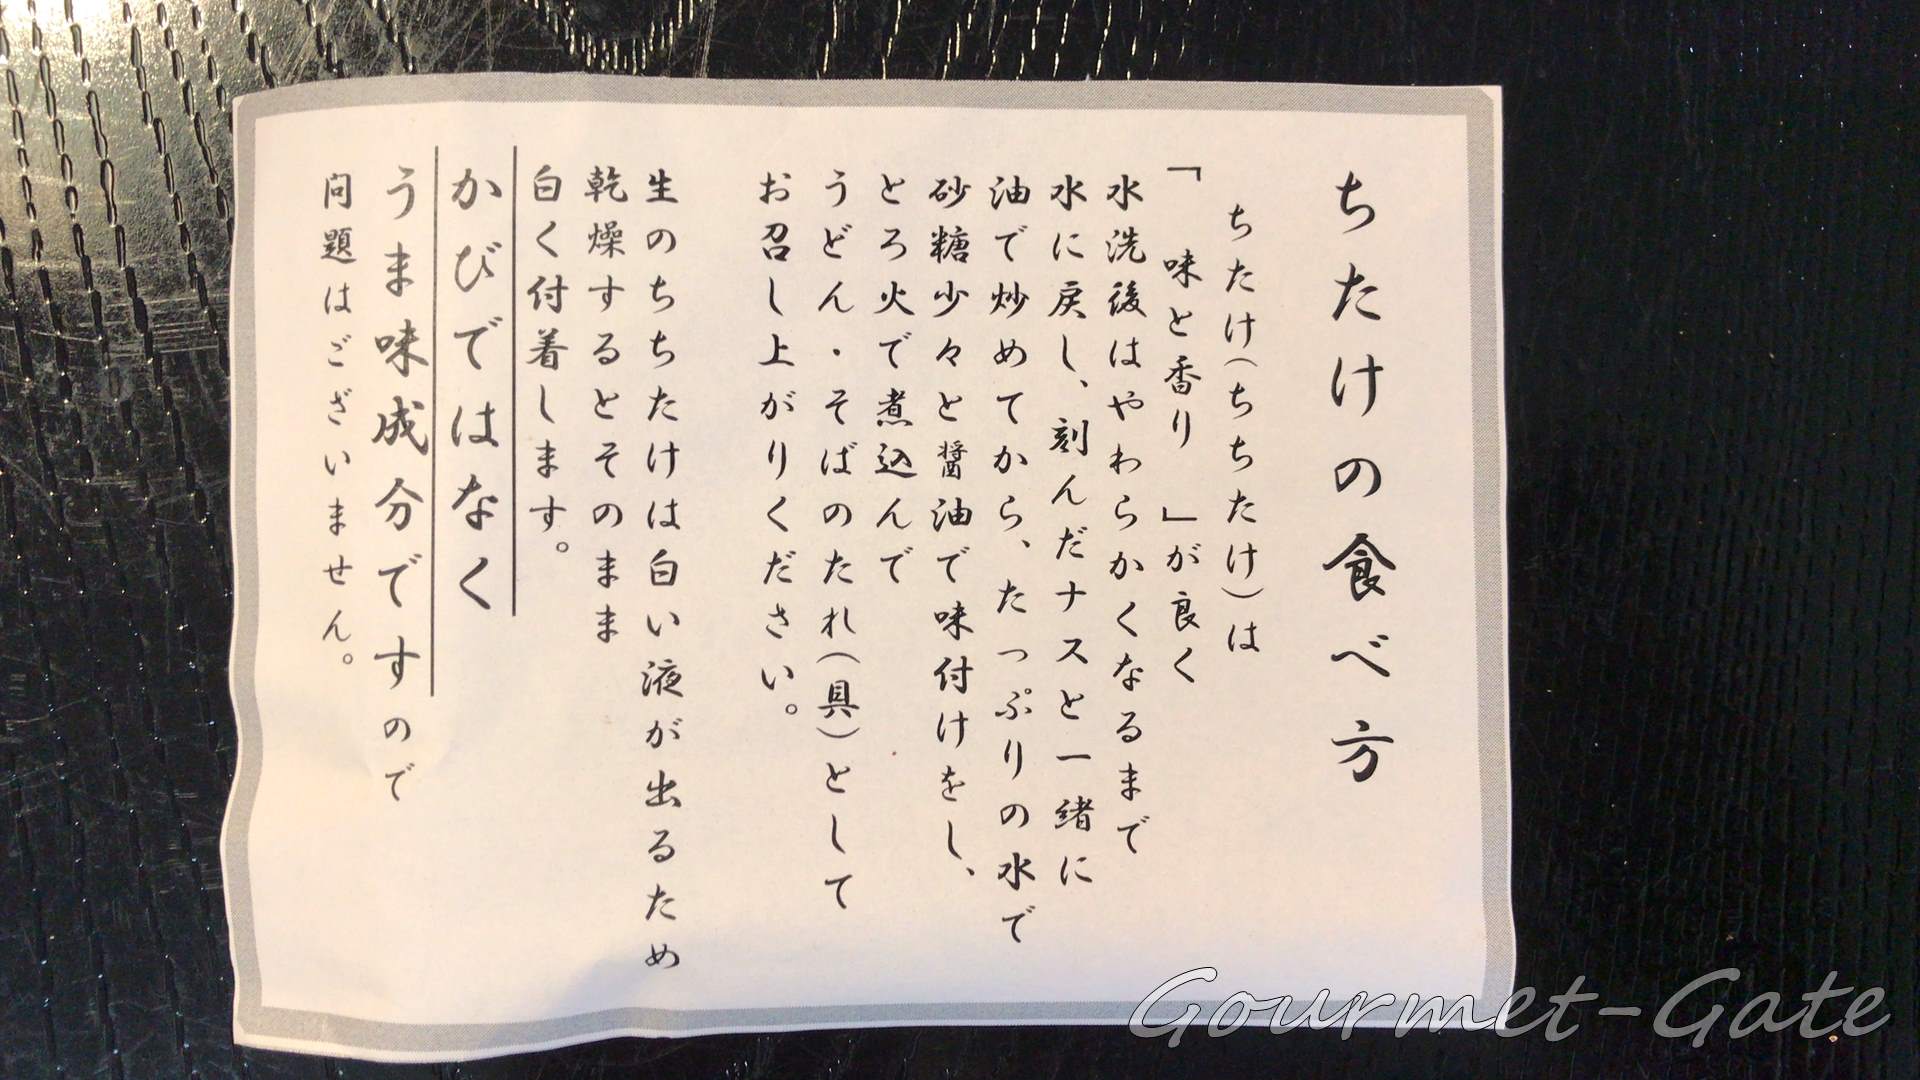 ちたけの食べ方
ちたけ(ちちたけ)は
「味と香り」が良く
水洗後はやわらかくなるまで
水に戻し、刻んだナスと一緒に
油で炒めてから、たっぷりの水で
砂糖少々と醤油で味付けをし、
とろ火で煮込んで
うどん・そばのたれ(具)として
お召し上がりください。
生のちちたけは白い液が出るため
乾燥するとそのまま
白く付着します。
かびではなく
うま味成分ですので
問題はございません。
Gourmet-Gate